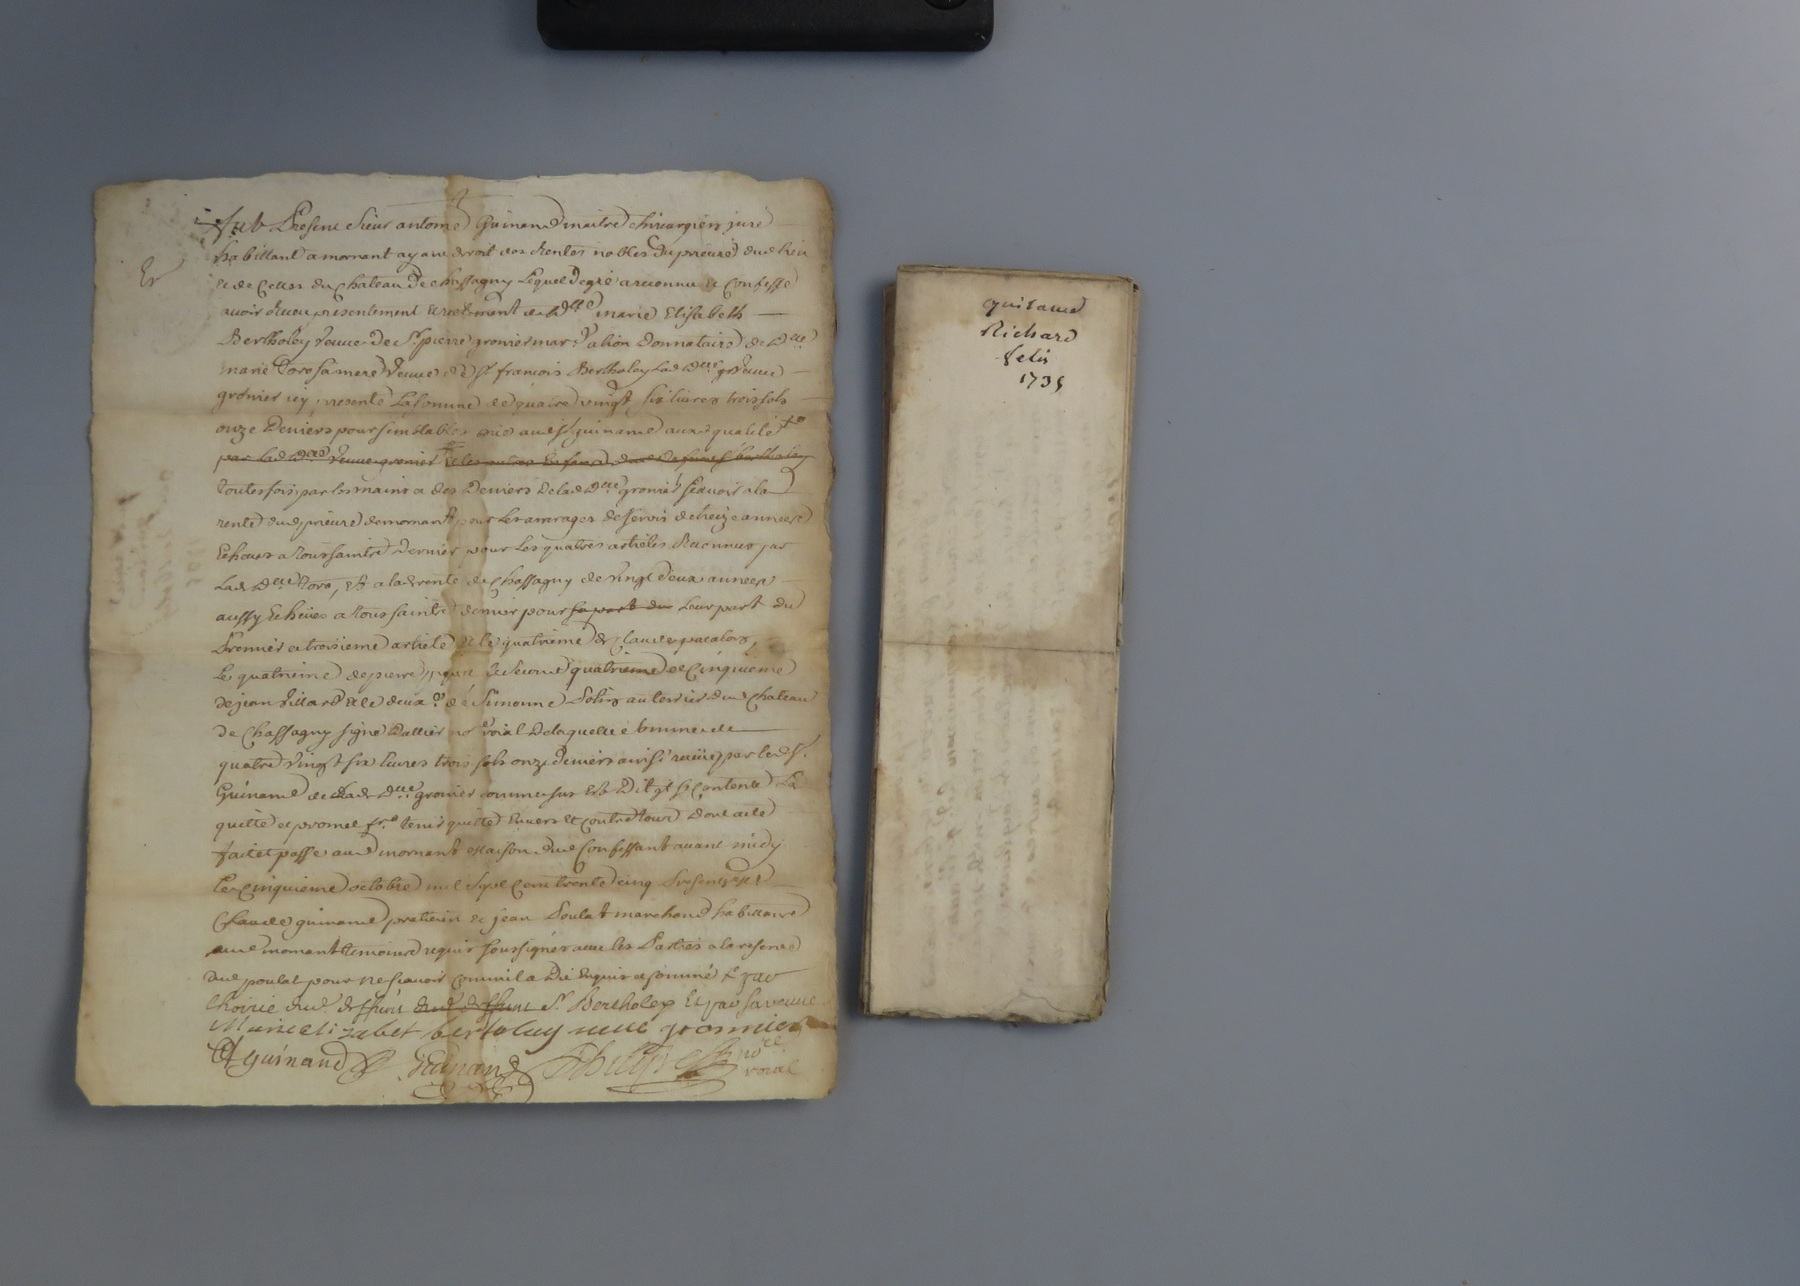 fut Present sieur antoine Guinand maitre chirurgien juré
habittant a mornant ayant droit des Rentes nobles du prieuré dud lieu
& de Celles du Chateau de Chassagny Lequel de gré a reconnu & Confessé
avoir Reçeu presentement & reelement de dlle marie Elisabeth
Bertholey veuve de Sr pierre gronier mard a lion Donnataire de dlle
marie Toro sa mere veuve de Sr francois Bertholey Lad dlle veuve
gronier icy presente La somme de quatre vingt six livres trois sols
onze Deniers pour semblable aud Sr guinand auxd qualité
par lad dlle veuve gronier & les autres Enfans dud defunt Sr bertholey
toutesfois par les mains & des Deniers de lad dlle gronier scavoir a la
rente dud prieuré de mornant pour Les arrerages de servis de treize années
Echeues a Toussaints Dernier pour Les quatres articles Reconnus par
Lad dlle Toro, Et a lad rente de Chassagny de vingt deux années
aussy Echeües a Toussaints dernier pour sa part du Leur part du
Premier & troisieme article & le quatrieme de Claude pacalon,
Le quatrieme de pierre pour le second quatrieme & Cinquieme
de jean villard & le deuxe de Simonne Solins au terrier dud Chateau
de Chassagny signé Dallier nore roial De laquelle somme de
quatre vingt six livres trois sols onze deniers ainsi receüe par led Sr
Guinand de Lad dlle gronier comme sus Est Dit il se Contente La
quitte et promet fre tenir quitte Envers & Contre tous Dont acte
fait et passé aud mornant Maison dud Confessant avant midy
Le Cinquieme octobre mil Sept Cent trente cinq Presents
Claude guinand praticien & jean Poulat marchand habittans
aud mornant temoins requis soussignés avec les Parties a la reserve
dud poulat pour ne scavoir comm il a Dit Enquis & sommé & par
Lhoirie dud deffunt dud deffunt Sr Bertholey Et par sa veuve
Marie elizabet bertolay veuve gronnier
A guinand Guinand nore
roial
Er
guinand
Richard
felix
1735